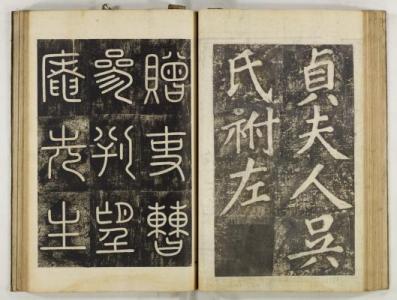 貞夫人吳
氏祔左
贈吏曹
參判望
庵先生